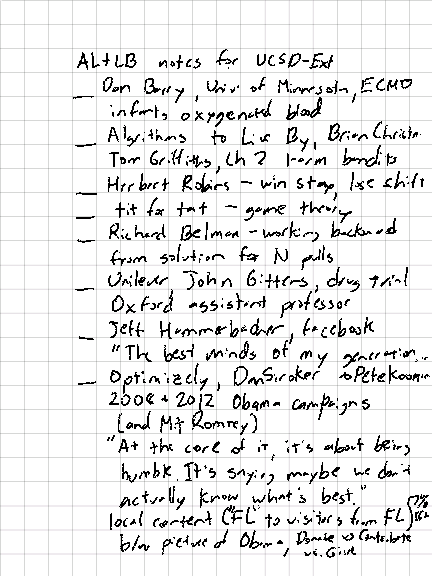 AL+LB notes for UCSD-Ext
— Don Berry, Univ of Minnesota, ECMO
infants oxygenated blood
— Algorithms to Live By, Brian Christin
Tom Griffiths, Ch 2 1-arm bandits
— Herbert Robins - win stay, lose shift
— tit for tat - game theory
— Richard Belman - working backward
from solution for N pulls
— Unilever, John Gittens, drug trial
Oxford assistant professor
— Jeff Hammerbacher, facebook
"The best minds of my generation...
— Optimizely, Dan Siroker & Pete Koomin
2008 + 2012 Obama campaigns
(and Mitt Romney)
"At the core of it, it's about being
humble. It's saying maybe we don't
actually know what's best."
local content ("FL" to visitors from FL)
blw picture of Obama, Donate vs Contribute
vs. Give